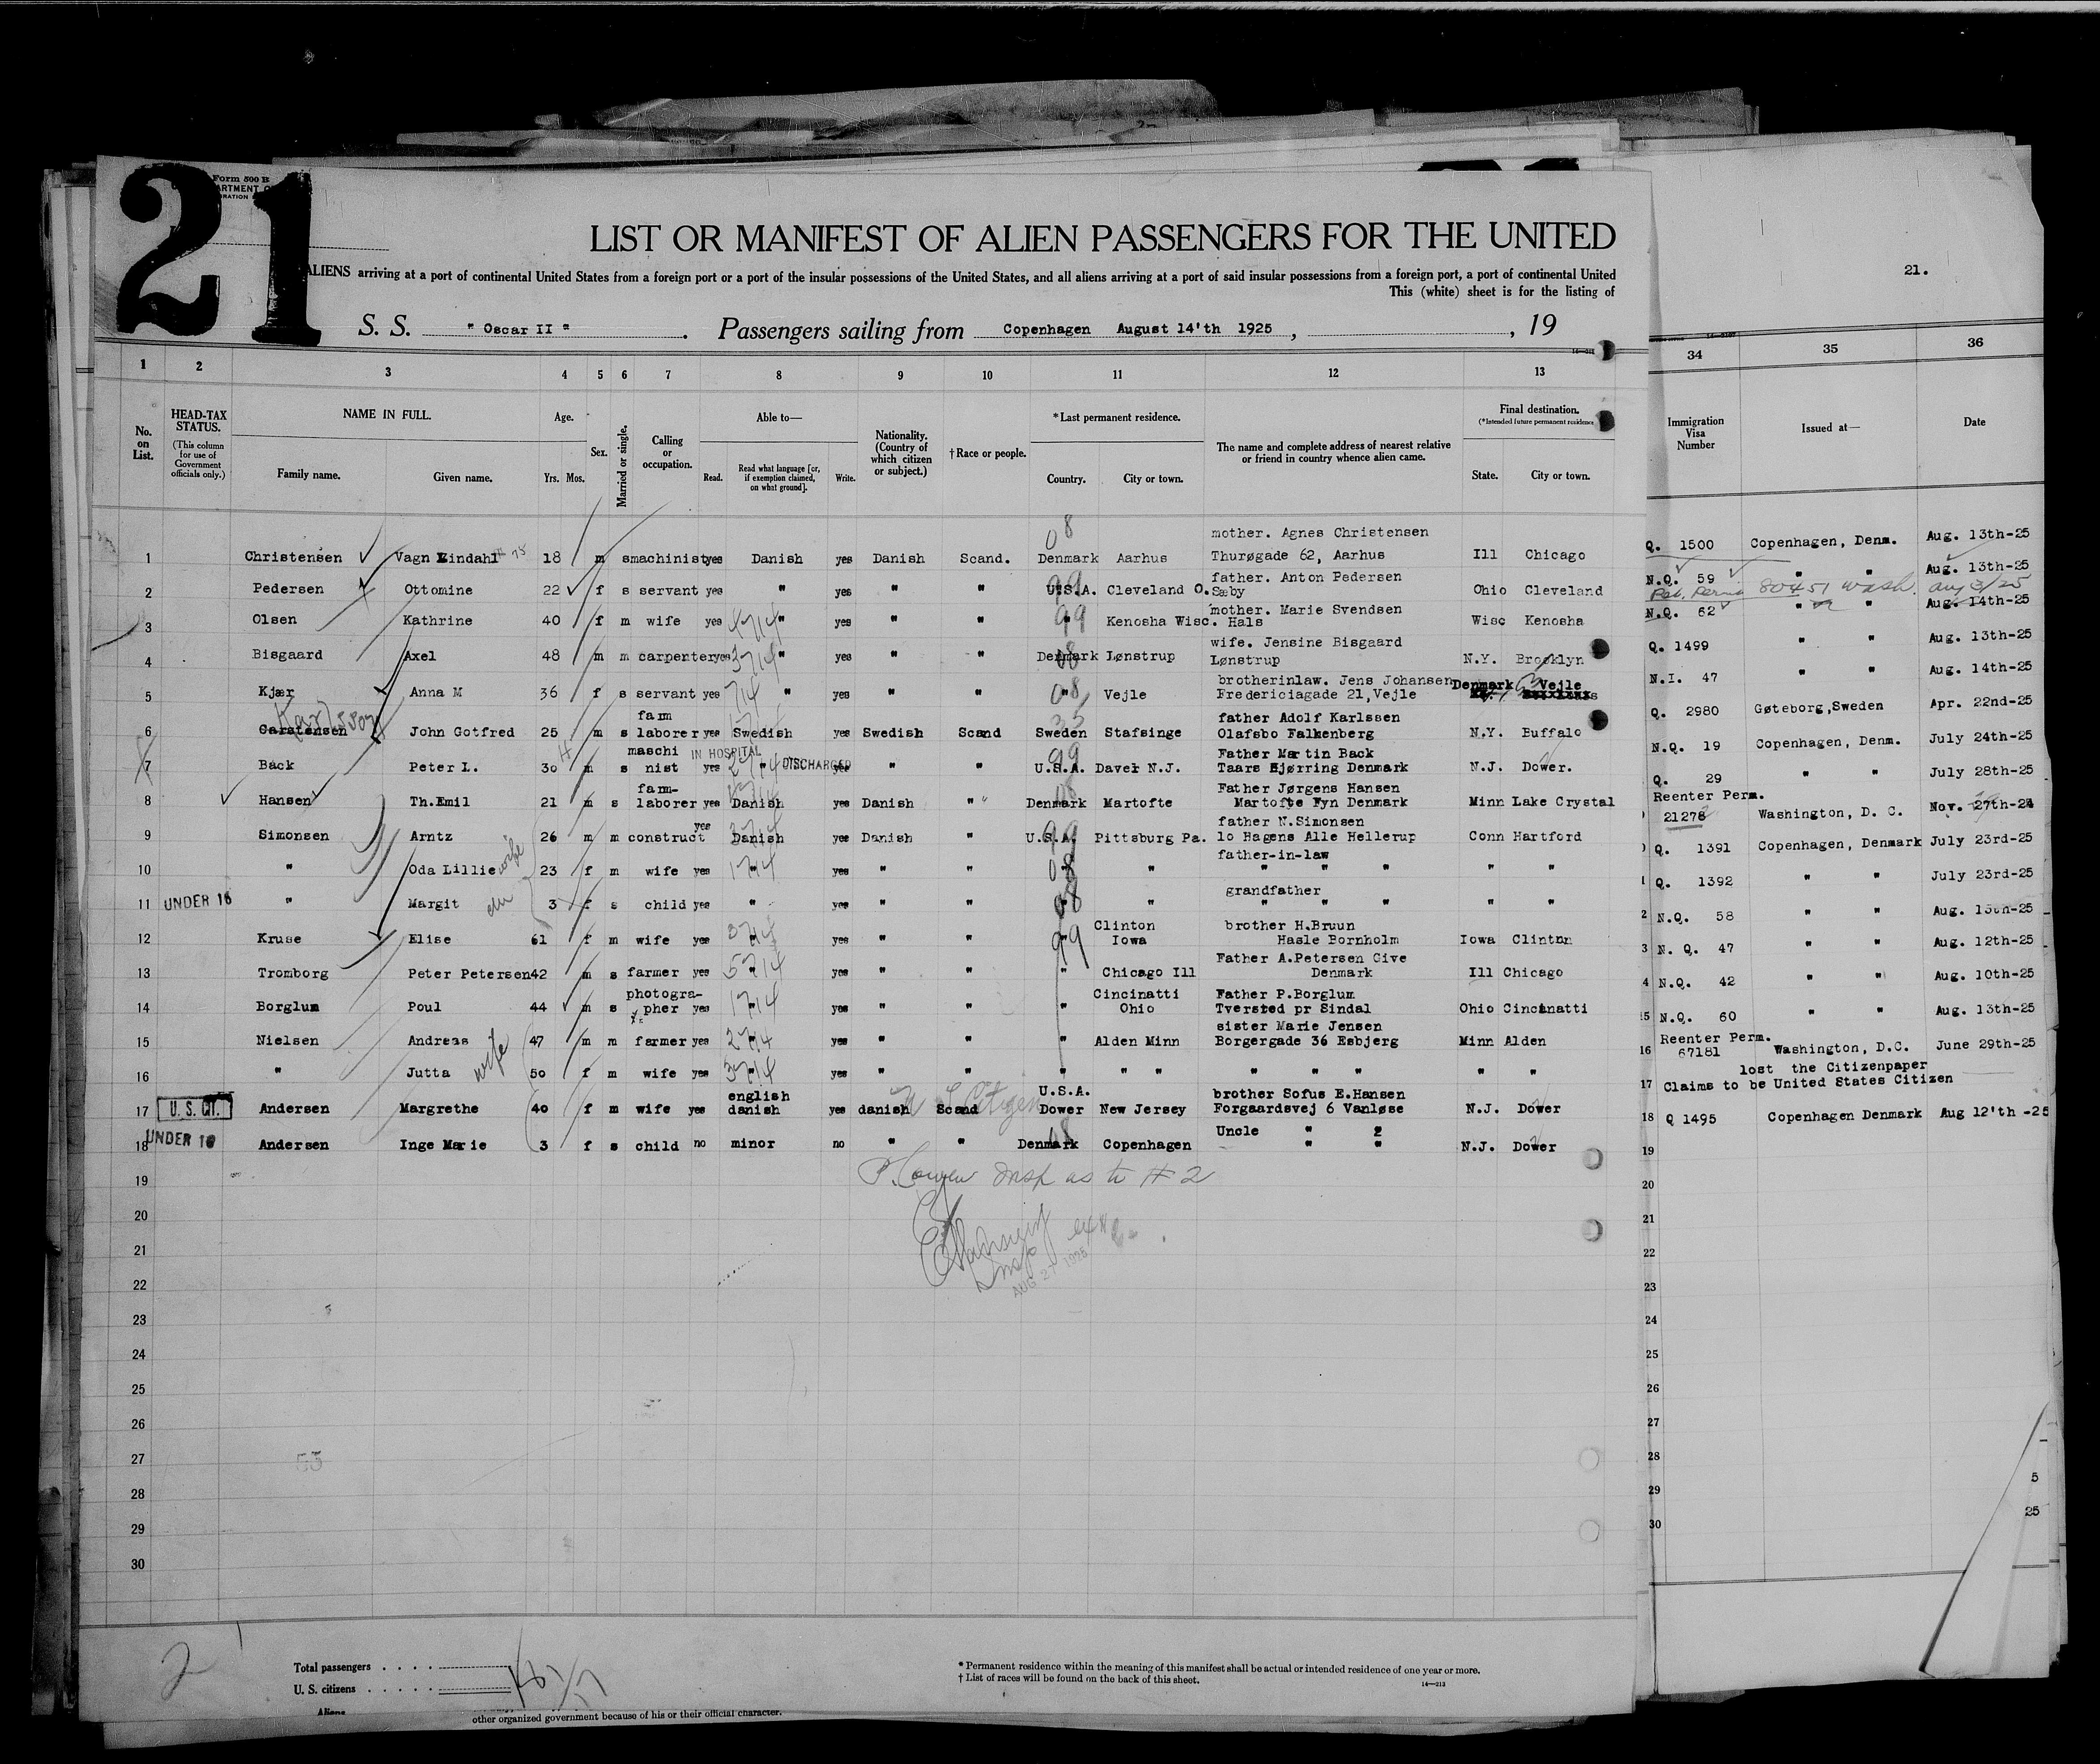 21
Form 500 B
LIST OR MANIFEST OF ALIEN PASSENGERS FOR THE UNITED
ALIENS arriving at a port of continental United States from a foreign port or a port of the insular possessions of the United States, and all aliens arriving at a port of said insular possessions from a foreign port, a port of continental United
This (white) sheet is for the listing of
S. S. " Oscar II " . Passengers sailing from Copenhagen August 14'th 1925 , , 19
21.
1 2 3 4 5 6 7 8 9 10 11 12 13 34 35 36
No. on List. HEAD-TAX STATUS. (This column for use of Government officials only.) NAME IN FULL. Family name. Given name. Age. Yrs. Mos. Sex. Married or single. Calling or occupation. Able to— Read. Read what language [or, if exemption claimed, on what ground]. Write. Nationality. (Country of which citizen or subject.) † Race or people. * Last permanent residence. Country. City or town. The name and complete address of nearest relative or friend in country whence alien came. Final destination. (*Intended future permanent residence State. City or town. Immigration Visa Number Issued at— Date
mother. Agnes Christensen
1 Christensen Vagn Lindahl 18 m s machinist yes Danish yes Danish Scand. Denmark Aarhus Thurøgade 62, Aarhus Ill Chicago Q. 1500 Copenhagen, Denm. Aug. 13th-25
father. Anton Pedersen
2 Pedersen Ottomine 22 f s servant yes " yes " " U.S.A. Cleveland O. Sæby Ohio Cleveland N.Q. 59 " " Aug. 13th-25
80451 Wash. Aug 3/25
mother. Marie Svendsen
3 Olsen Kathrine 40 f m wife yes " yes " " " Kenosha Wisc. Hals Wisc Kenosha N.Q. 62 " " Aug. 14th-25
wife. Jensine Bisgaard
4 Bisgaard Axel 48 m m carpenter yes " yes " " Denmark Lønstrup Lønstrup N.Y. Brooklyn Q. 1499 " " Aug. 13th-25
brotherinlaw. Jens Johansen Denmark Vejle
5 Kjær Anna M 36 f s servant yes " yes " " " Vejle Fredericiagade 21, Vejle N.I. 47 " " Aug. 14th-25
Karlsson farm father Adolf Karlssen
6 Carstensen John Gotfred 25 m s laborer yes Swedish yes Swedish Scand Sweden Stafsinge Olafsbo Falkenberg N.Y. Buffalo Q. 2980 Gøteborg, Sweden Apr. 22nd-25
maschi IN HOSPITAL DISCHARGED Father Martin Back
7 Back Peter L. 30 m s nist yes " yes " " U.S.A. Daver N.J. Taars Hjørring Denmark N.J. Dower. N.Q. 19 Copenhagen, Denm. July 24th-25
farm- Father Jørgens Hansen
8 Hansen Th.Emil 21 m s laborer yes Danish yes Danish " Denmark Martofte Martofte Fyn Denmark Minn Lake Crystal Q. 29 " " July 28th-25
father N.Simonsen Reenter Perm.
9 Simonsen Arntz 26 m m construct yes Danish yes Danish " U.S.A. Pittsburg Pa. 10 Hagens Alle Hellerup Conn Hartford 21278 Washington, D. C. Nov. 27th-24
father-in-law
10 " Oda Lillie wife 23 f m wife yes " yes " " " " " " " " Q. 1391 Copenhagen, Denmark July 23rd-25
grandfather
11 UNDER 16 " Margit 3 f s child yes " yes " " " " " " " " " Q. 1392 " " July 23rd-25
Clinton brother H.Bruun
12 Kruse Elise 61 f m wife yes " yes " " " Iowa Hasle Bornholm Iowa Clinton N.Q. 58 " " Aug. 13th-25
Father A.Petersen Give
13 Tromborg Peter Petersen 42 m s farmer yes " yes " " " Chicago Ill Denmark Ill Chicago N. Q. 47 " " Aug. 12th-25
photogra- Cincinatti Father P.Borglum
14 Borglum Poul 44 m s pher yes " yes " " " Ohio Tversted pr Sindal Ohio Cincinatti N.Q. 42 " " Aug. 10th-25
sister Marie Jensen
15 Nielsen Andreas 47 m m farmer yes " yes " " " Alden Minn Borgergade 36 Esbjerg Minn Alden N.Q. 60 " " Aug. 13th-25
Reenter Perm.
16 " Jutta wife 50 f m wife yes " yes " " " " " " " " " " 67181 Washington, D.C. June 29th-25
english U.S.A. brother Sofus E.Hansen lost the Citizenpaper
17 U. S. CIT. Andersen Margrethe 40 f m wife yes danish yes danish Scand U S Citizen Dower New Jersey Forgaardsvej 6 Vanløse N.J. Dower Claims to be United States Citizen
Uncle " 2
18 UNDER 16 Andersen Inge Marie 3 f s child no minor no " " Denmark Copenhagen " " N.J. Dower Q 1495 Copenhagen Denmark Aug 12'th -25
19 Insp as to # 2
20
21
22 AUG 27 1925
23
24
25
26
27
28
29
30
5
25
2
Total passengers . . . .
U. S. citizens . . . . .
Aliens
other organized government because of his or their official character.
* Permanent residence within the meaning of this manifest shall be actual or intended residence of one year or more.
† List of races will be found on the back of this sheet.
14—213